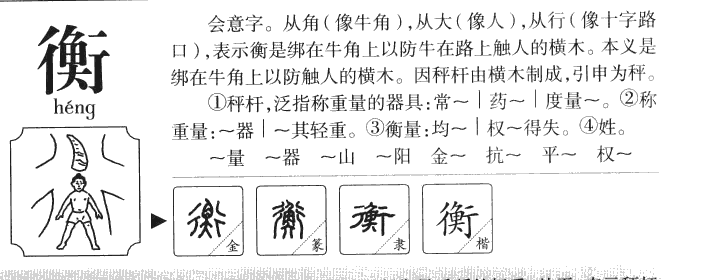 衡
héng
会意字。从角(像牛角),从大(像人),从行(像十字路
口),表示衡是绑在牛角上以防牛在路上触人的横木。本义是
绑在牛角上以防触人的横木。因秤杆由横木制成,引申为秤。
①秤杆,泛指称重量的器具:常～|药～|度量～。②称
重量:～器|～其轻重。③衡量:均～|权～得失。④姓。
～量 ～器 ～山 ～阳 金～ 抗～ 平～ 权～
衡 金
衡 篆
衡 隶
衡 楷